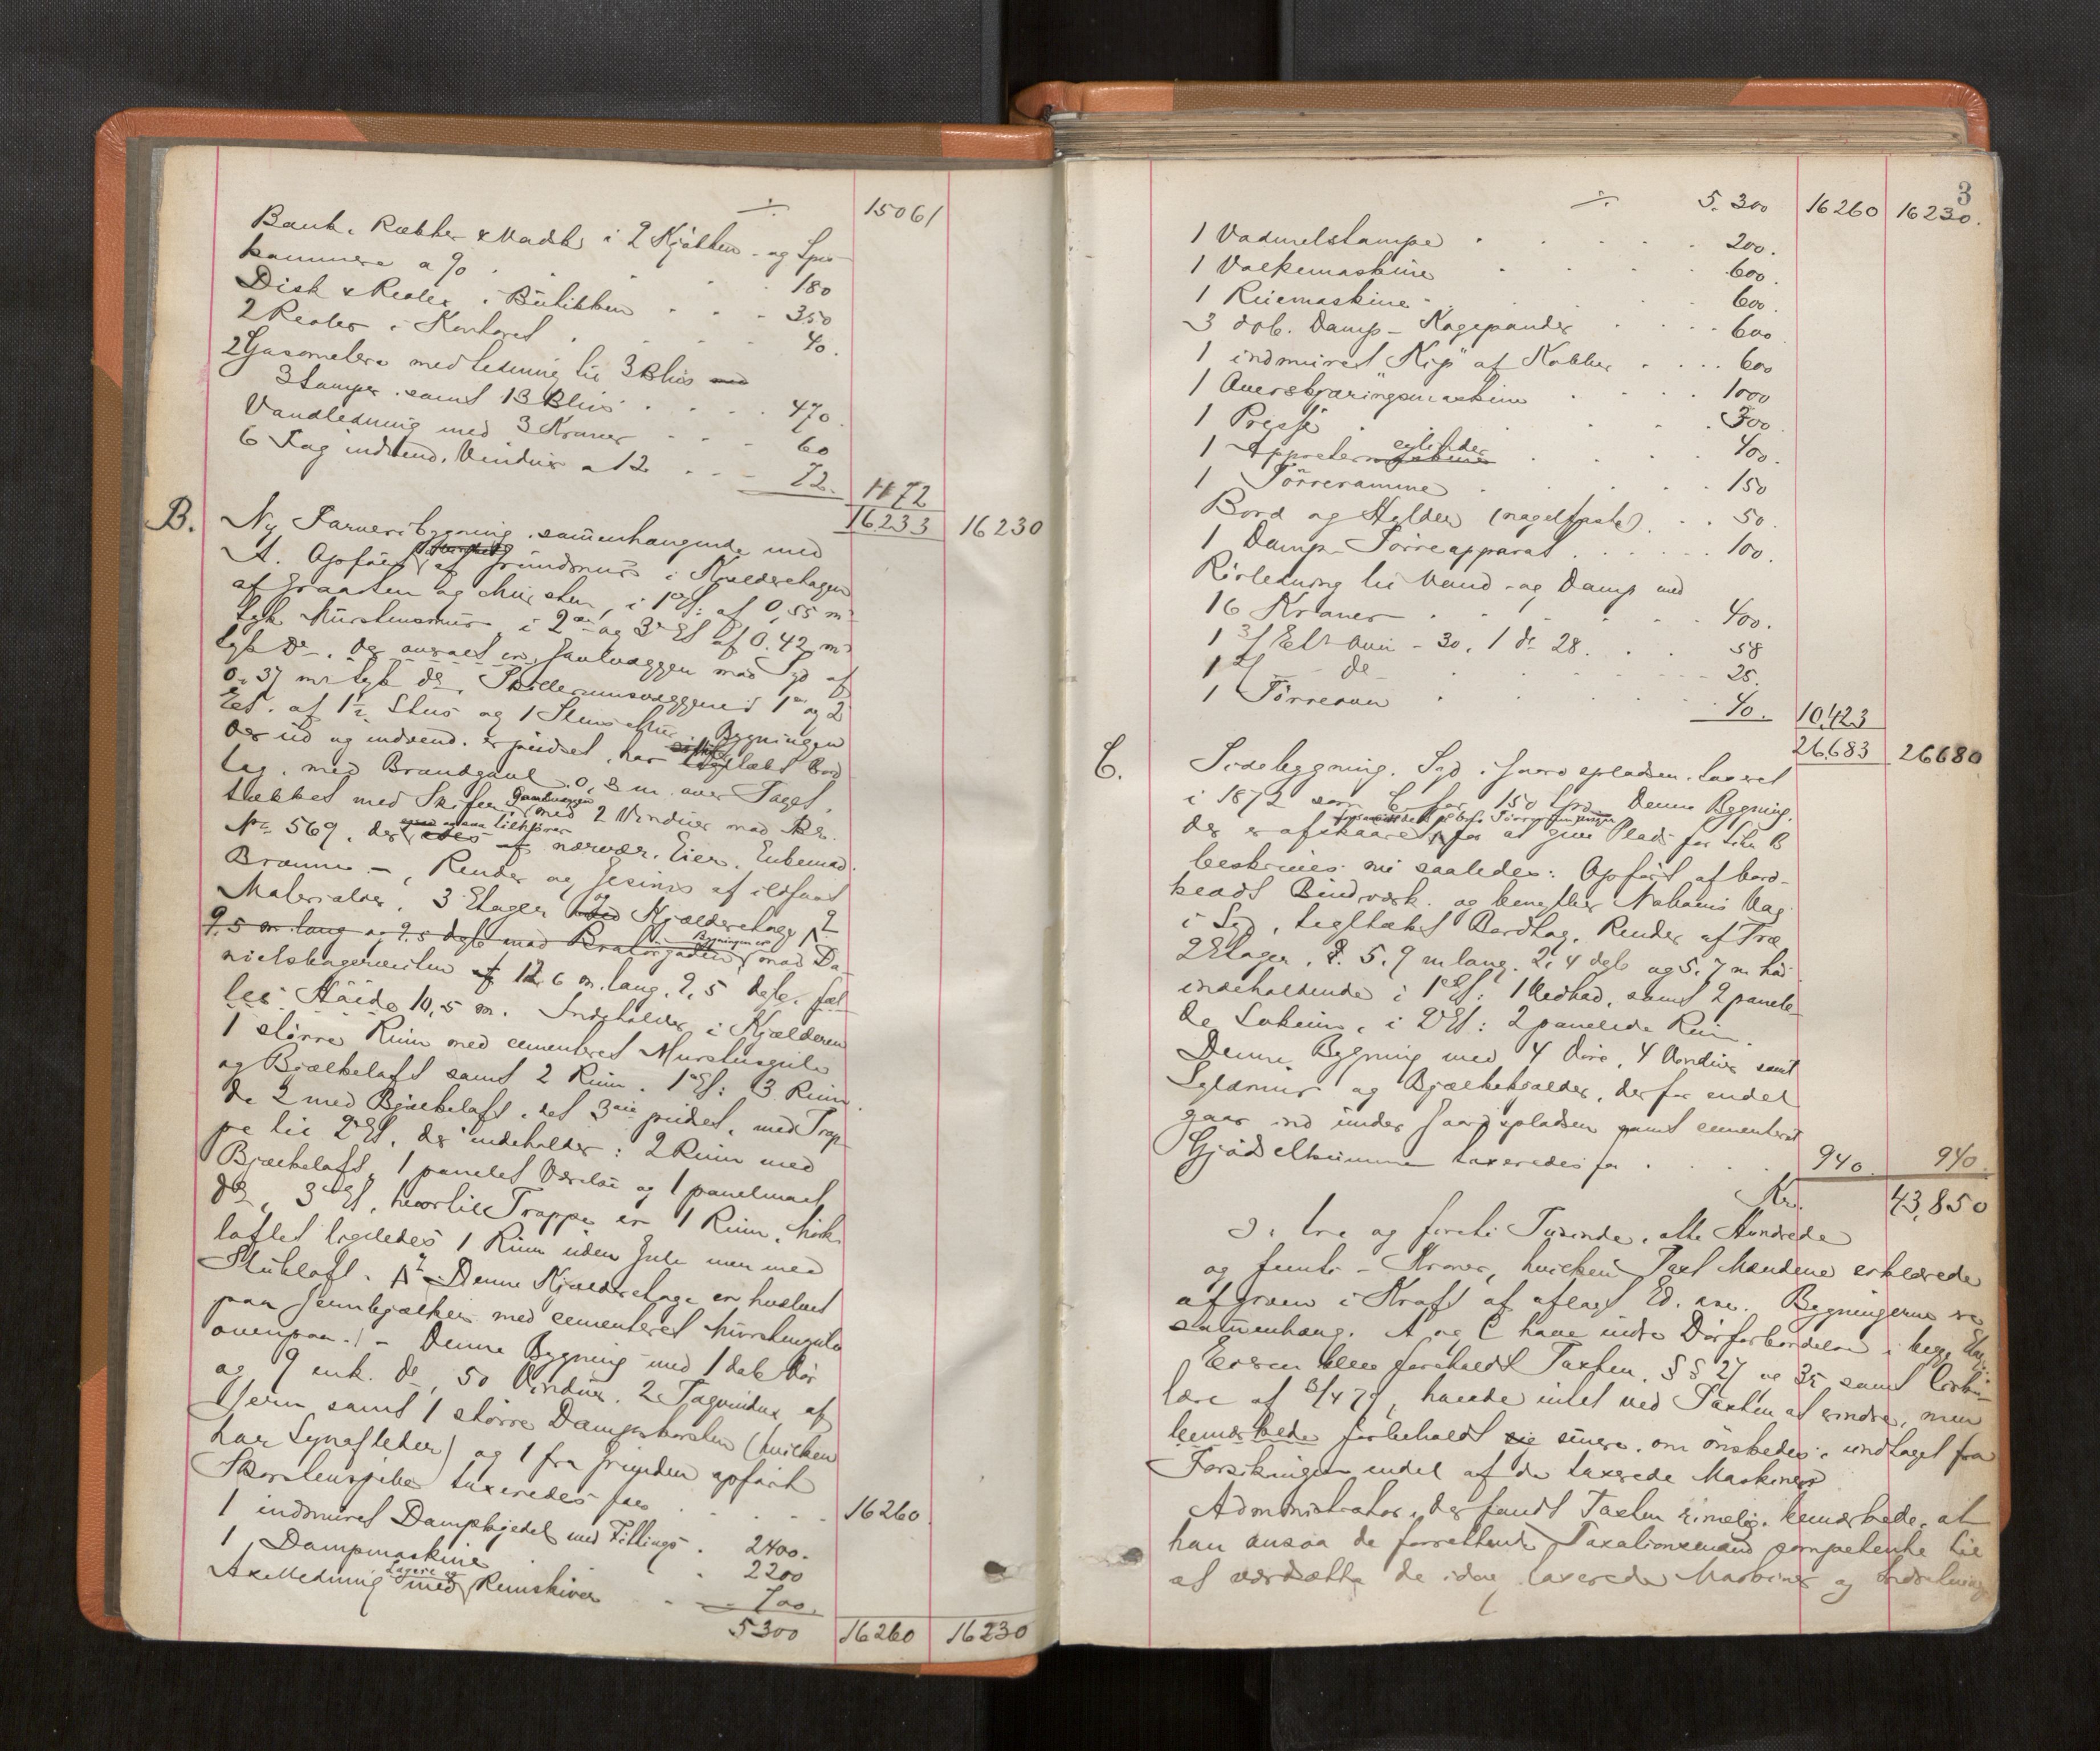 ÷ 15061
Bænk, Rækker & Vadsk i 2 Kjøkken- og Spis-
kammere a 90 . . . . 180
Disk & Reoler i Butikken . . . 350
2 Reoler i Kontoret . . . . 40.
2 Gasometere med Ledning til 3 Blus med
3 Lamper, samt 13 Blus . . . . 470.
Vandledning med 3 Kraner . . . 60
6 Fag indvend. Vinduer a 12 . . . 72. 1172
16233 16230
B. Ny Farveribygning sammenhængende med
A. Opført af Grundmur i Kjælderetagen
af Graasten og Mursten, i 1ste Et: af 0,55 m
tyk Murstensmur i 2den og 3die Et af 0.42 m
tyk Do, der ansaaes en, Gavlvæggen mod Syd af
0,37 mr tyk do, Skillerumsvæggene i 1ste og 2
Et. af 1½ Stens og 1 Stens Mur. Bygningen
der ud og indvend. er pudset, har tegltækt Bord
tag, med Brandgavl 0,3 m. over Taget,
tækket med Skifer, Gavlvæggen med 2 Vinduer mod
No 569, der tilhører nærvær. Eier, Enkemad.
Bramm –, Render og Gesims af ildfast
Materialer. 3 Etager og Kjælderetage
9.5 m. lang og 9.5 dyb mod Bygningen er mod Da-
nielsbagerveiten 12,6 m. lang, 9,5 dyb, fæl-
les Høide 10,5 m. Indeholder i Kjælderen
1 større Rum med cementeret Murstensgulv
og Bjælkeloft samt 2 Rum. 1ste Et: 3 Rum
de 2 med Bjælkeloft, det 3die pudset, med Trap-
pe til 2den Et, der indeholder: 2 Rum med
Bjælkeloft, 1 panelet Værelse og 1 panelmalt
do, 3die Et, hvortil Trappe er 1 Rum, Mørk-
loftet ligeledes 1 Rum uden Gulv men med
Stukloft. Denne Kjælderetage er hvælvet
paa Jernbjælker med cementeret Murstensgulv
ovenpaa.) – Denne Bygning med 1 dob Dør
og 9 enk. do, 50 Vinduer, 2 Tagvinduer af
Jern samt 1 større Dampskorsten (hvilken
har Lynafleder) og 1 fra Grunden opført
Skorstenspibe taxeredes for . . . . 16260.
1 indmuret Dampkjedel med Fittings . 2400.
1 Dampmaskine . . . 2200
Axelledning med Lagere og Remskiver . . 700.
5300 16260 16230
3
÷ 5.300 16260 16230.
1 Vadmelstampe . . . . . 200.
1 Valkemaskine . . . . . 600.
1 Ruemaskine . . . . . 600.
3 dob. Damp-Kogepander . . . . 600
1 indmuret "Kip" af Kobber . . . . 600
1 Overskjæringsmaskine . . . . 1000
1 Presse . . . . . 300.
1 Appretercylinder . . . . 400.
1 Tørreramme . . . . . 150
Bord og Hylder (nagelfaste) . . . 50.
1 Damp-Tørreapparat . . . . . . 100.
Rørledning til Vand- og Damp med
16 Kraner . . . . . . 400.
1 3/ Ets Ovn – 30, 1 do 28. . . 58
1 2/ – do – . . . . 25.
1 Tørreovn . . . . . 40. 10,423
26,683 26680
C. Sidebygning. Syd i Gaardspladsen, taxeret
i 1872 som C. for 150 Spd. Denne Bygning,
der er afskaaren for at give Plads for Litr. B
beskrives nu saaledes: Opført af bord-
klædt Bindværk og benytter Naboens Væg
i Syd, tegltækket Bordtag, Render af Træ
2 Etager, 5.9 m lang. 2,4 dyb og 5.7 m høi
indeholdende i 1ste Et: 1 Vedbod, samt 2 panele-
de Lokum, i 2den Et: 2 panelede Rum.
Denne Bygning med 4 Døre, 4 Vinduer samt
Syldmur og Bjælkekjælder, der for endel
gaar ind under Gaardspladsen samt cementeret
Gjødselkumme taxeredes for . . . . . 940. 940.
Kr. 43,850
d. e. tre og firti Tusinde, otte Hundrede
og femti – Kroner, hvilken Taxt Mændene erklærede
afgiven i Kraft af aflagt Ed. Bygningerne ere
sammenhæng. A og C have indre Dørforbindelse i begge Etag.
Eieren blev foreholdt Taxten, §§ 27 og 35 samt Cirku-
lære af 3/4 79, havde intet ved Taxten at erindre, men
bemærkede forbeholdt sig senere, om ønskedes, undtaget fra
Forsikringen endel af de taxerede Maskiner.
Administrator, der fandt Taxten rimelig, bemærkede, at
han ansaa de forrettende Taxationsmænd kompetente til
at værdsætte de idag taxerede Maskiner og Indretninger